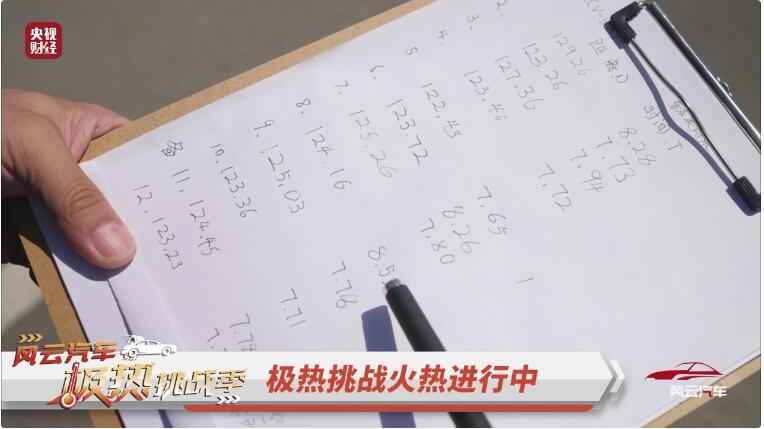 央视
财经
距离:D
时间:T
129.26 8.28
2. 123.26 7.73
3. 127.36 7.94
4. 123.46 7.72
5. 122.43 7.65
6. 123.72 8.26
7. 125.26 7.80
8. 124.16 8.5
9. 125.03 7.76
10. 123.36 7.71
备 11. 124.45
12. 123.23
风云汽车
极热挑战季
极热挑战火热进行中
风云汽车